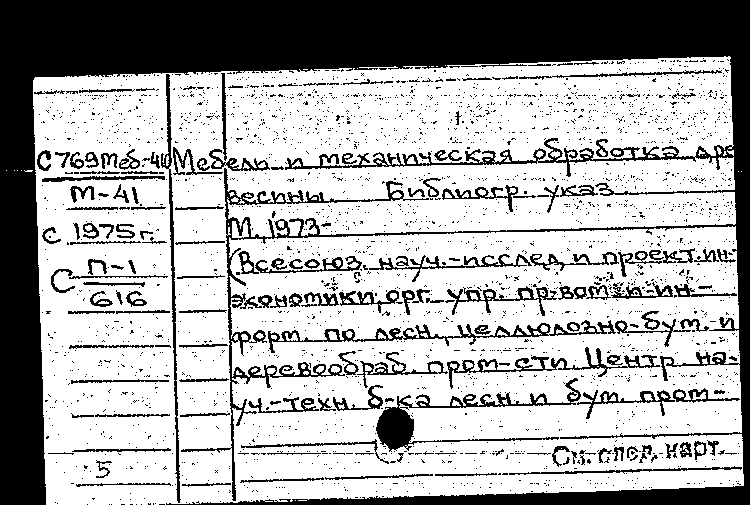 С 769 Меб-410 Мебели и механическая обработка дре
М-41 весины. Библиогр. указ.
с 1975 г. М., 1973-
С П-1 (Всесоюз. науч.-исслед. и проект. ин-
616 экономики, орг. упр. пр-вом и ин-
форм. по лесн., целлюлозно-бум. и
деревообраб. пром-сти. Центр. на-
уч.-техн. б-ка лесн. и бум. пром-
См. след. карт.
5